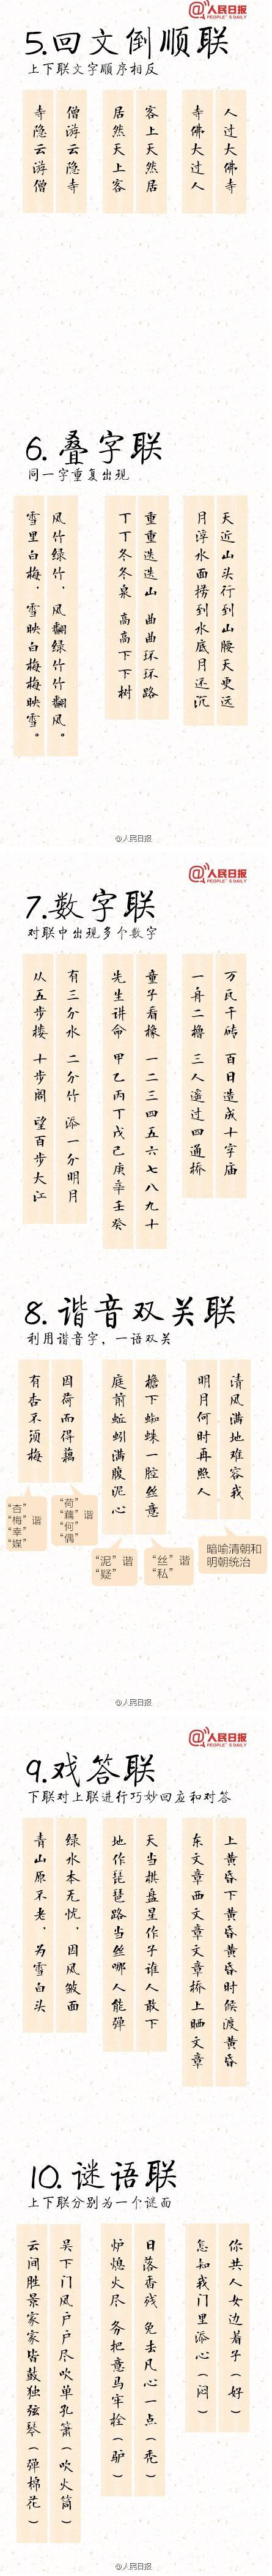 @人民日报
PEOPLE'S DAILY
5.回文倒顺联
上下联文字顺序相反
人过大佛寺
寺佛大过人
客上天然居
居然天上客
僧游云隐寺
寺隐云游僧
6.叠字联
同一字重复出现
天近山头行到山腰天更远
月浮水面捞到水底月还沉
重重迭迭山 曲曲环环路
丁丁冬冬泉 高高下下树
风竹绿竹，风翻绿竹竹翻风。
雪里白梅，雪映白梅梅映雪。
@人民日报
@人民日报
PEOPLE'S DAILY
7.数字联
对联中出现多个数字
万瓦千砖 百日造成十字庙
一舟二橹 三人遥过四通桥
童子看椽 一二三四五六七八九十
先生讲命 甲乙丙丁戊己庚辛壬癸
有三分水 二分竹 添一分明月
从五步楼 十步阁 望百步大江
8.谐音双关联
利用谐音字，一语双关
清风满地难容我
明月何时再照人
檐下蜘蛛一腔丝意
庭前蚯蚓满腹泥心
因荷而得藕
有杏不须梅
暗喻清朝和
明朝统治
“丝”谐
“私”
“泥”谐
“疑”
“荷”
“藕”谐
“何”
“偶”
“杏”
“梅”谐
“幸”
“媒”
@人民日报
@人民日报
PEOPLE'S DAILY
9.戏答联
下联对上联进行巧妙回应和对答
上黄昏下黄昏黄昏时候渡黄昏
东文章西文章文章桥上晒文章
天当棋盘星作子谁人敢下
地作琵琶路当丝哪人能弹
绿水本无忧，因风皱面
青山原不老，为雪白头
10.谜语联
上下联分别为一个谜面
你共人女边着子（好）
怎知我门里添心（闷）
日落香残 免去凡心一点（秃）
炉熄火尽 务把意马牢栓（驴）
吴下门风户户尽吹单孔箫（吹火筒）
云间胜景家家皆鼓独弦琴（弹棉花）
@人民日报